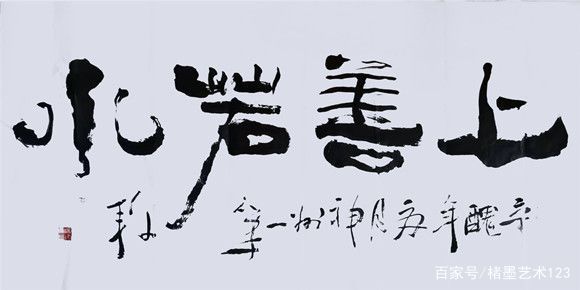 上善若水
辛醜年月神州一筆
百家号/楮墨艺术123